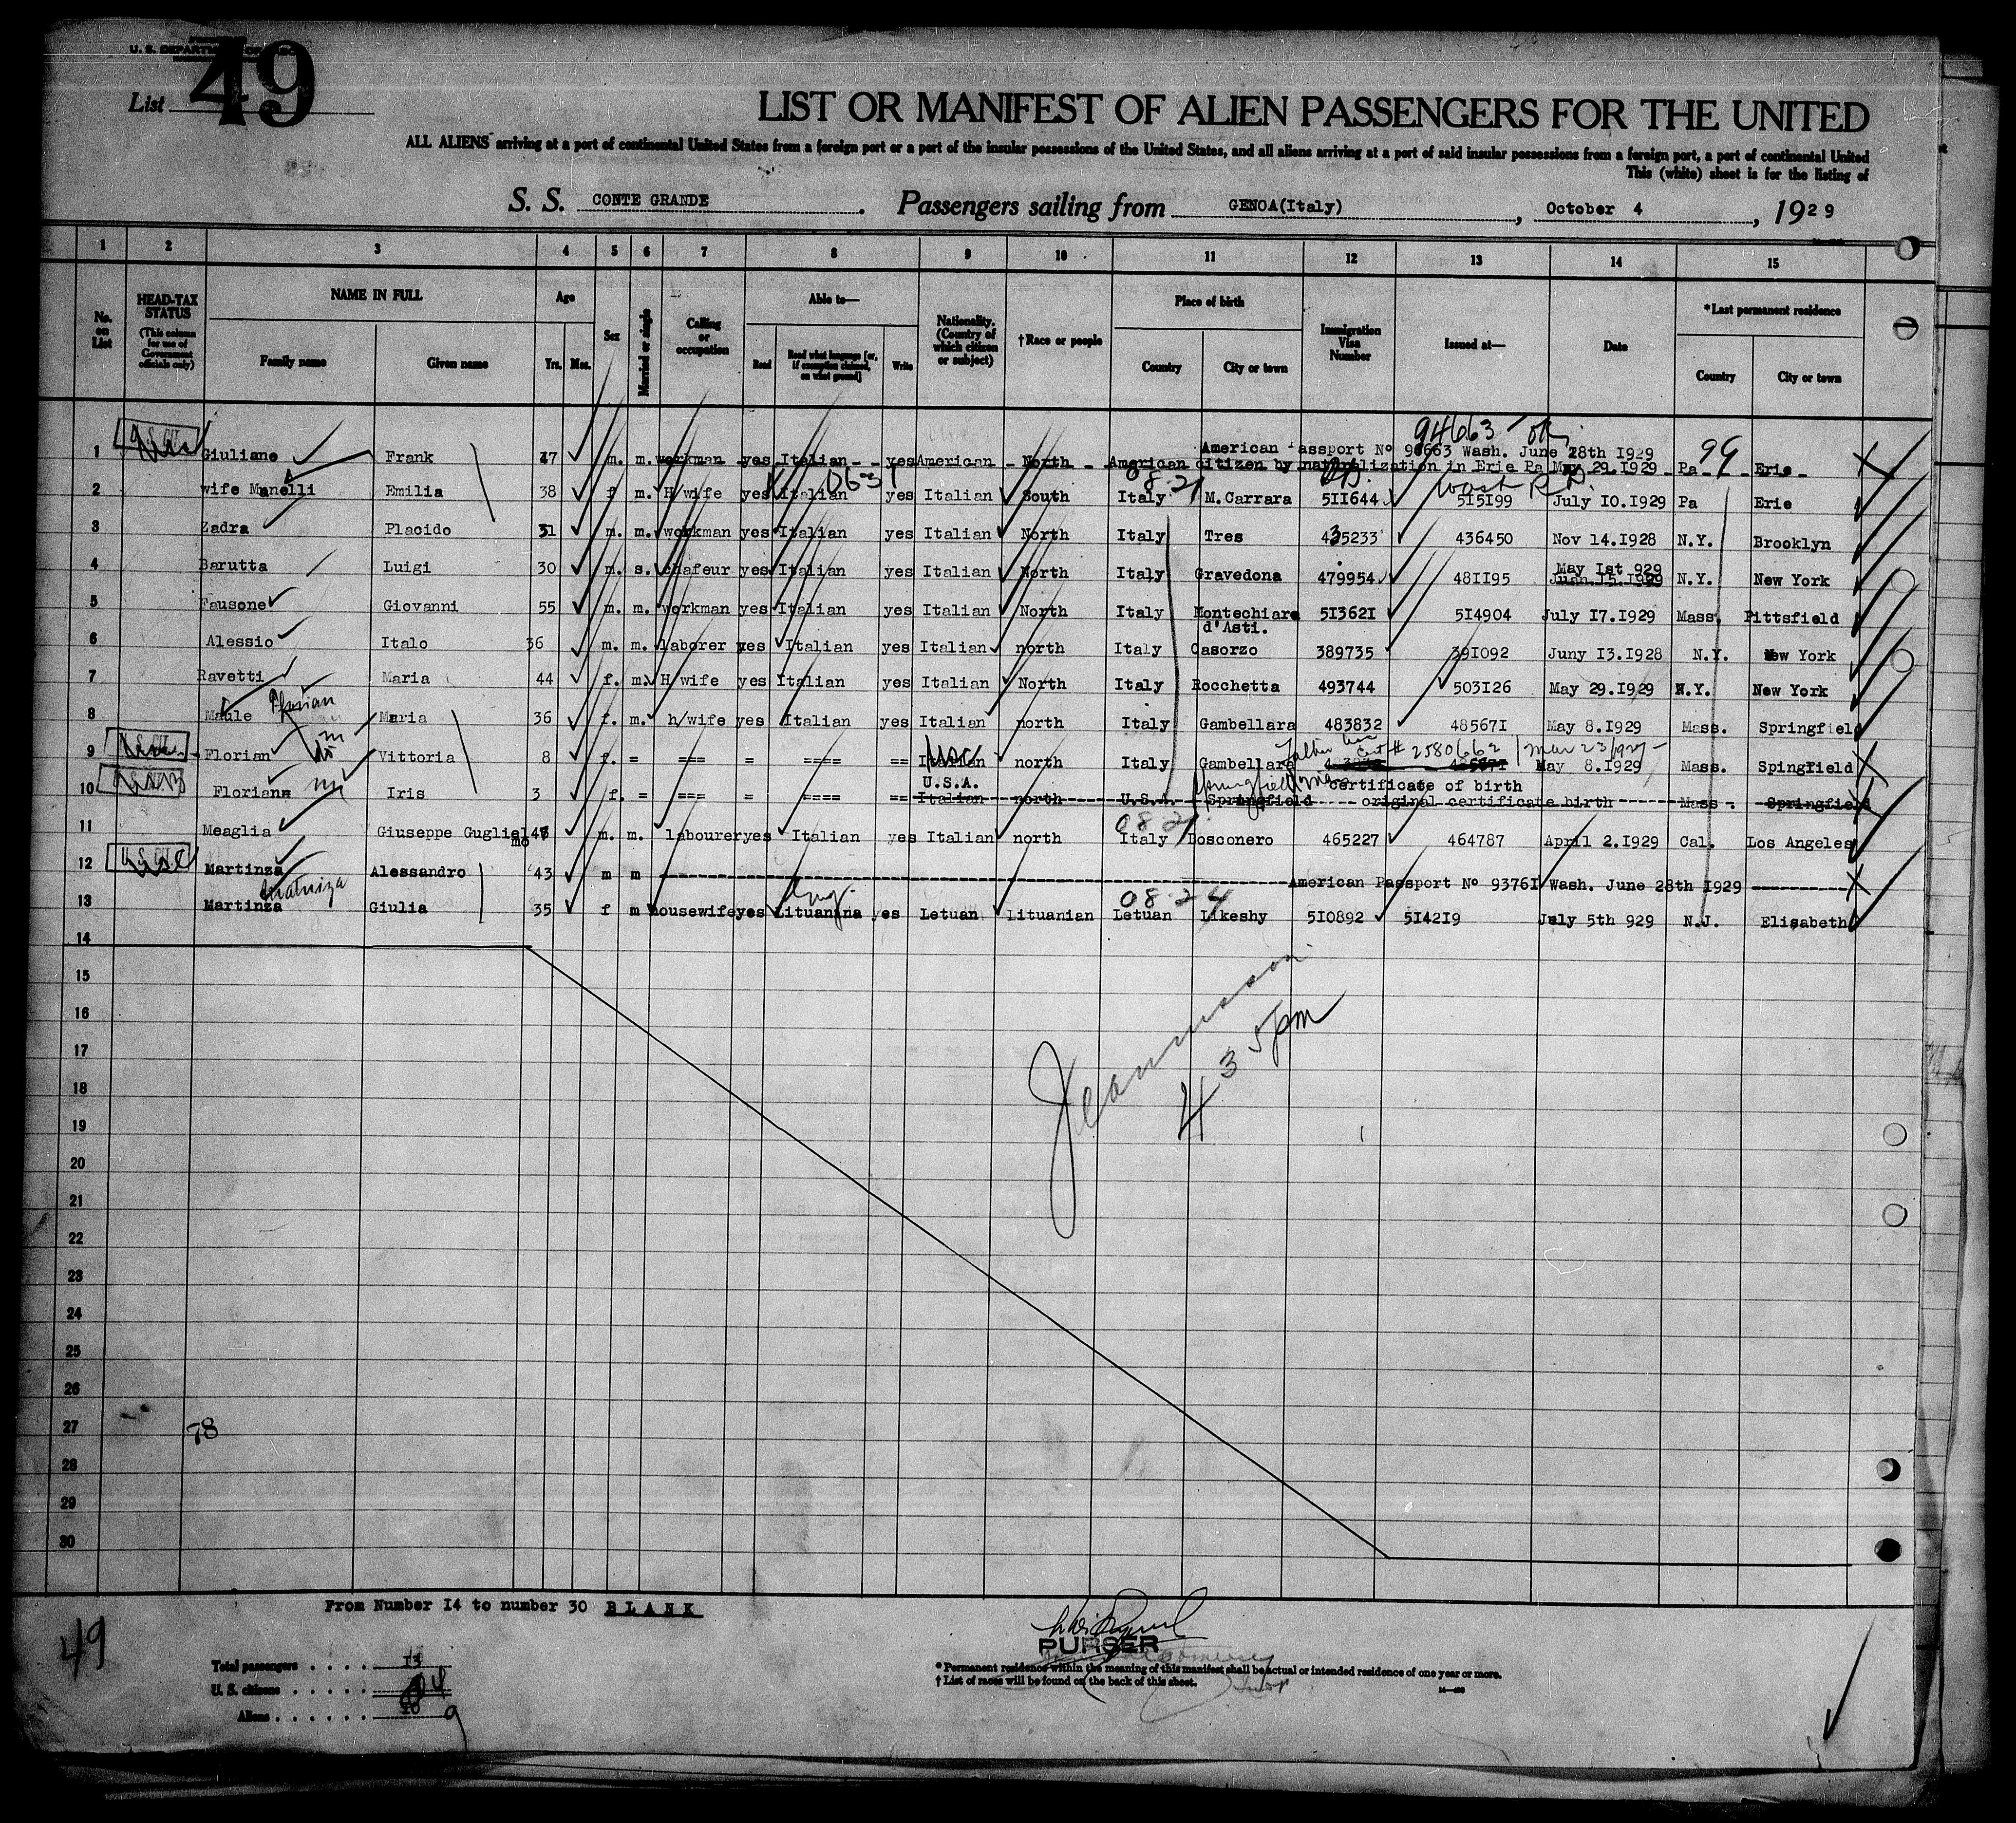 49
List
LIST OR MANIFEST OF ALIEN PASSENGERS FOR THE UNITED
ALL ALIENS arriving at a port of continental United States from a foreign port or a port of the insular possessions of the United States, and all aliens arriving at a port of said insular possessions from a foreign port, a port of continental United
This (white) sheet is for the listing of
S. S. CONTE GRANDE. Passengers sailing from GENOA(Italy), October 4, 1929
1 2 3 4 5 6 7 8 9 10 11 12 13 14 15
No. on List
HEAD-TAX STATUS (This column for use of Government officials only)
NAME IN FULL Family name Given name
Age Yrs. Mos.
Sex
Married or single
Calling or occupation
Able to— Read Read what language [or, if exemption claimed, on what ground] Write
Nationality. (Country of which citizen or subject)
†Race or people
Place of birth Country City or town
Immigration Visa Number
Issued at—
Date
*Last permanent residence Country City or town
94663 OK
American Passport Nº 98663 Wash. June 28th 1929 99
1 Giuliano Frank 47 m. m. workman yes Italian yes American North American citizen by naturalization in Erie Pa May 29.1929 Pa Erie
08-21
2 wife Manelli Emilia 38 f m. H/wife yes Italian yes Italian South Italy M.Carrara 511644 515199 July 10.1929 Pa Erie
3 Zadra Placido 31 m. m. workman yes Italian yes Italian North Italy Tres 435233 436450 Nov 14.1928 N.Y. Brooklyn
May 1st 929
4 Barutta Luigi 30 m. s. chafeur yes Italian yes Italian North Italy Gravedona 479954 481195 N.Y. New York
5 Fausone Giovanni 55 m. m. workman yes Italian yes Italian North Italy Montechiaro d'Asti. 513621 514904 July 17.1929 Mass. Pittsfield
6 Alessio Italo 36 m. m. laborer yes Italian yes Italian north Italy Casorzo 389735 391092 Juny 13.1928 N.Y. New York
7 Ravetti Maria 44 f. m. H/wife yes Italian yes Italian North Italy Rocchetta 493744 503126 May 29.1929 N.Y. New York
Florian
8 Maule Maria 36 f. m. h/wife yes Italian yes Italian north Italy Gambellara 483832 485671 May 8.1929 Mass. Springfield
# 2580662 Mar 23 1927
9 Florian Vittoria 8 f. = === = ==== == Italian north Italy Gambellara May 8.1929 Mass. Spingfield
U.S.A. certificate of birth
10 Floriana Iris 3 f. = === = ==== == Italian north U.S.A. Springfield original certificate birth Mass. Springfield
08 21
11 Meaglia Giuseppe Guglielmo 48 m. m. labourer yes Italian yes Italian north Italy Bosconero 465227 464787 April 2.1929 Cal. Los Angeles
12 U.S.CIT. Martinza Alessandro 43 m m American Passport Nº 93761 Wash. June 28th 1929
08 24
13 Martinza Giulia 35 f m housewife yes Lituanina yes Letuan Lituanian Letuan Likeshy 510892 514219 July 5th 929 N.J. Elisabeth
14
15
16
17
18
19
20
21
22
23
24
25
26
27
28
29
30
4 35 pm
78
From Number 14 to number 30 BLANK
49
PURSER
Total passengers . . . . 13
U. S. citizens . . . . . 4
Aliens . . . . . . 9
* Permanent residence within the meaning of this manifest shall be actual or intended residence of one year or more.
† List of races will be found on the back of this sheet.